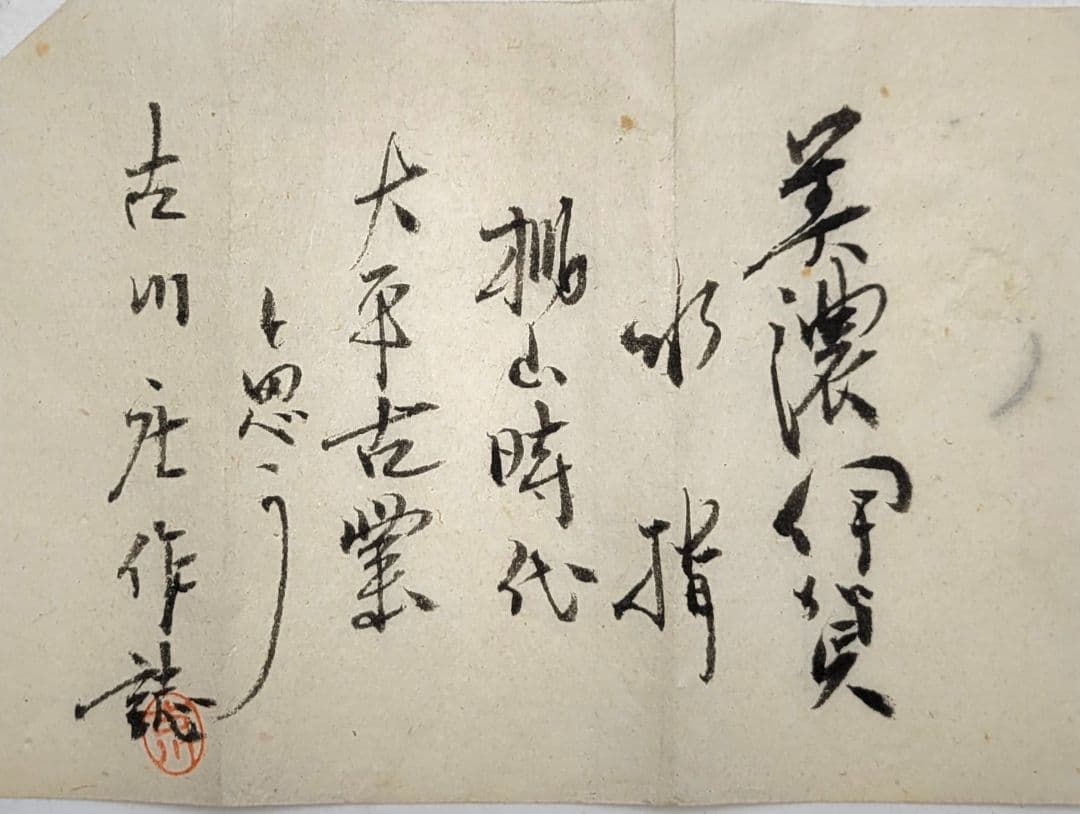 美濃伊賀
水指
桃山時代
大平古窯
と思う
古川庄作誌
古川